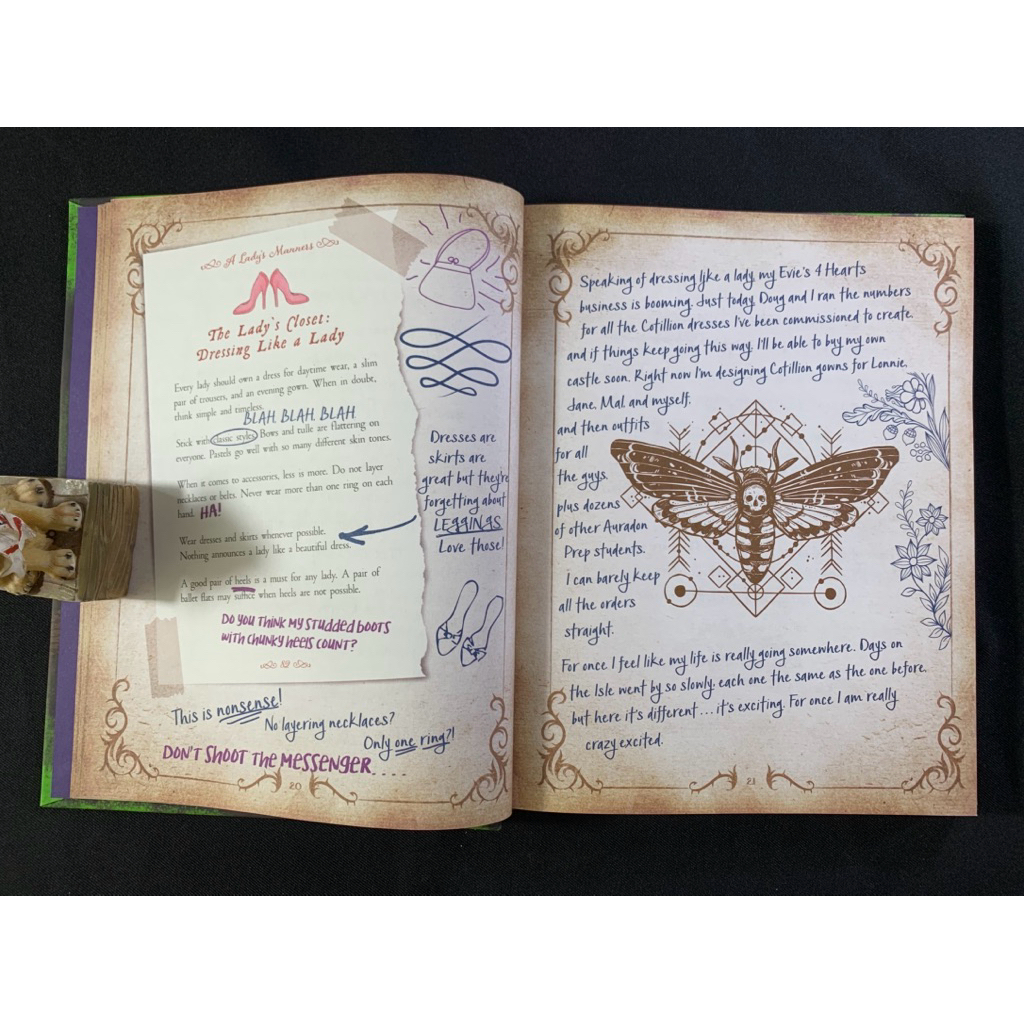 A Lady's Manners
The Lady's Closet:
Dressing Like a Lady
Every lady should own a dress for daytime wear, a slim
pair of trousers, and an evening gown. When in doubt,
think simple and timeless.
BLAH, BLAH, BLAH.
Stick with classic styles. Bows and tulle are flattering on
everyone. Pastels go well with so many different skin tones.
When it comes to accessories, less is more. Do not layer
necklaces or belts. Never wear more than one ring on each
hand. HA!
Wear dresses and skirts whenever possible.
Nothing announces a lady like a beautiful dress.
A good pair of heels is a must for any lady. A pair of
ballet flats may suffice when heels are not possible.
DO YOU THINK MY STUDDED BOOTS
WITH CHUNKY HEELS COUNT?
Dresses are
skirts are
great but they're
forgetting about
LEGGINGS.
Love those!
This is nonsense!
No layering necklaces?
Only one ring?!
DON'T SHOOT THE MESSENGER....
20
Speaking of dressing like a lady, my Evie's 4 Hearts
business is booming. Just today, Doug and I ran the numbers
for all the Cotillion dresses I've been commissioned to create,
and if things keep going this way, I'll be able to buy my own
castle soon. Right now I'm designing Cotillion gowns for Lonnie,
Jane, Mal, and myself,
and then outfits
for all
the guys,
plus dozens
of other Auradon
Prep students.
I can barely keep
all the orders
straight.
For once I feel like my life is really going somewhere. Days on
the Isle went by so slowly, each one the same as the one before,
but here it's different...it's exciting. For once I am really
crazy excited.
21